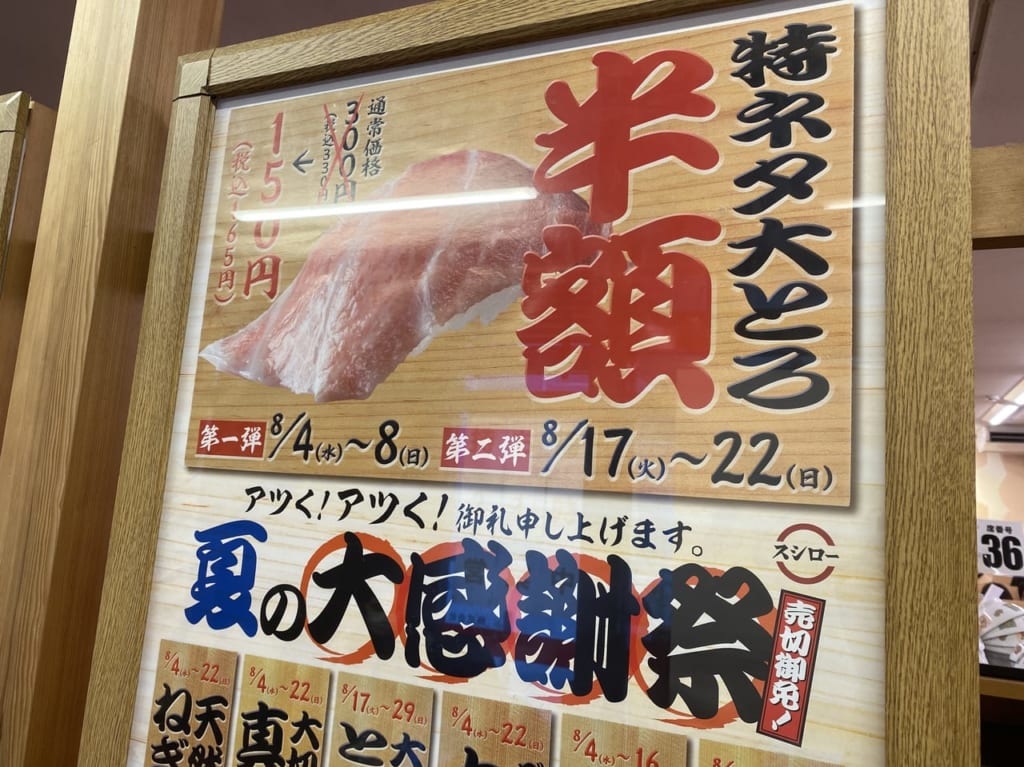 特ネタ大とろ
半額
通常価格
300円
(税込330円)
←
150円
(税込165円)
第一弾 8/4(水)~8(日) 第二弾 8/17(火)~22(日)
アツく!アツく!御礼申し上げます。
スシロー
夏の大感謝祭
売切御免!
8/4(水)~22(日)
天然
ねぎ
8/4(水)~22(日)
大切
真
8/17(火)~29(日)
大
と
8/4(水)~22(日)
8/4(水)~16
36